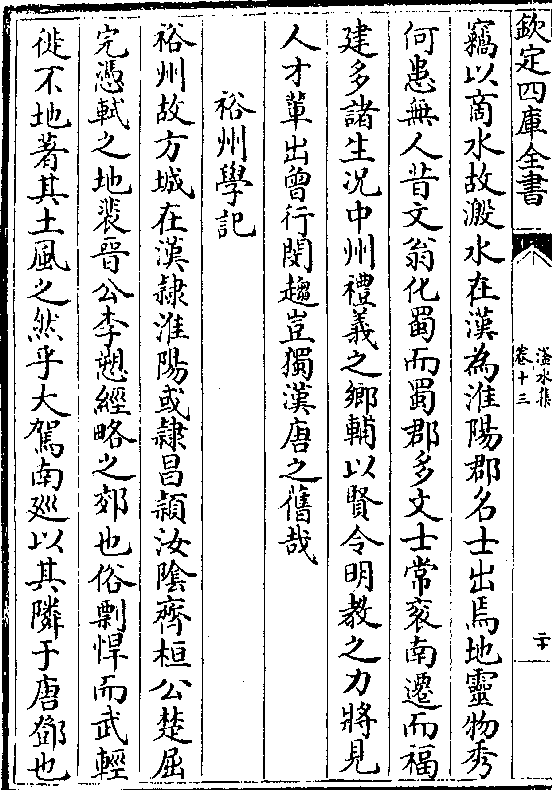 欽定四庫全書
滏水集
卷十三
二十
竊以商水故濦水在漢為淮陽郡名士出焉地靈物秀
何患無人昔文翁化蜀而蜀郡多文士常袞南遷而福
建多諸生况中州禮義之鄉輔以賢令明教之力將見
人才輩出曾行閔趨豈獨漢唐之舊哉
裕州學記
裕州故方城在漢隷淮陽或隷昌頴汝隂齊桓公楚屈
完憑軾之地裴晉公李愬經略之郊也俗剽悍而武輕
徙不地著其土風之然乎大駕南廵以其隣于唐鄧也